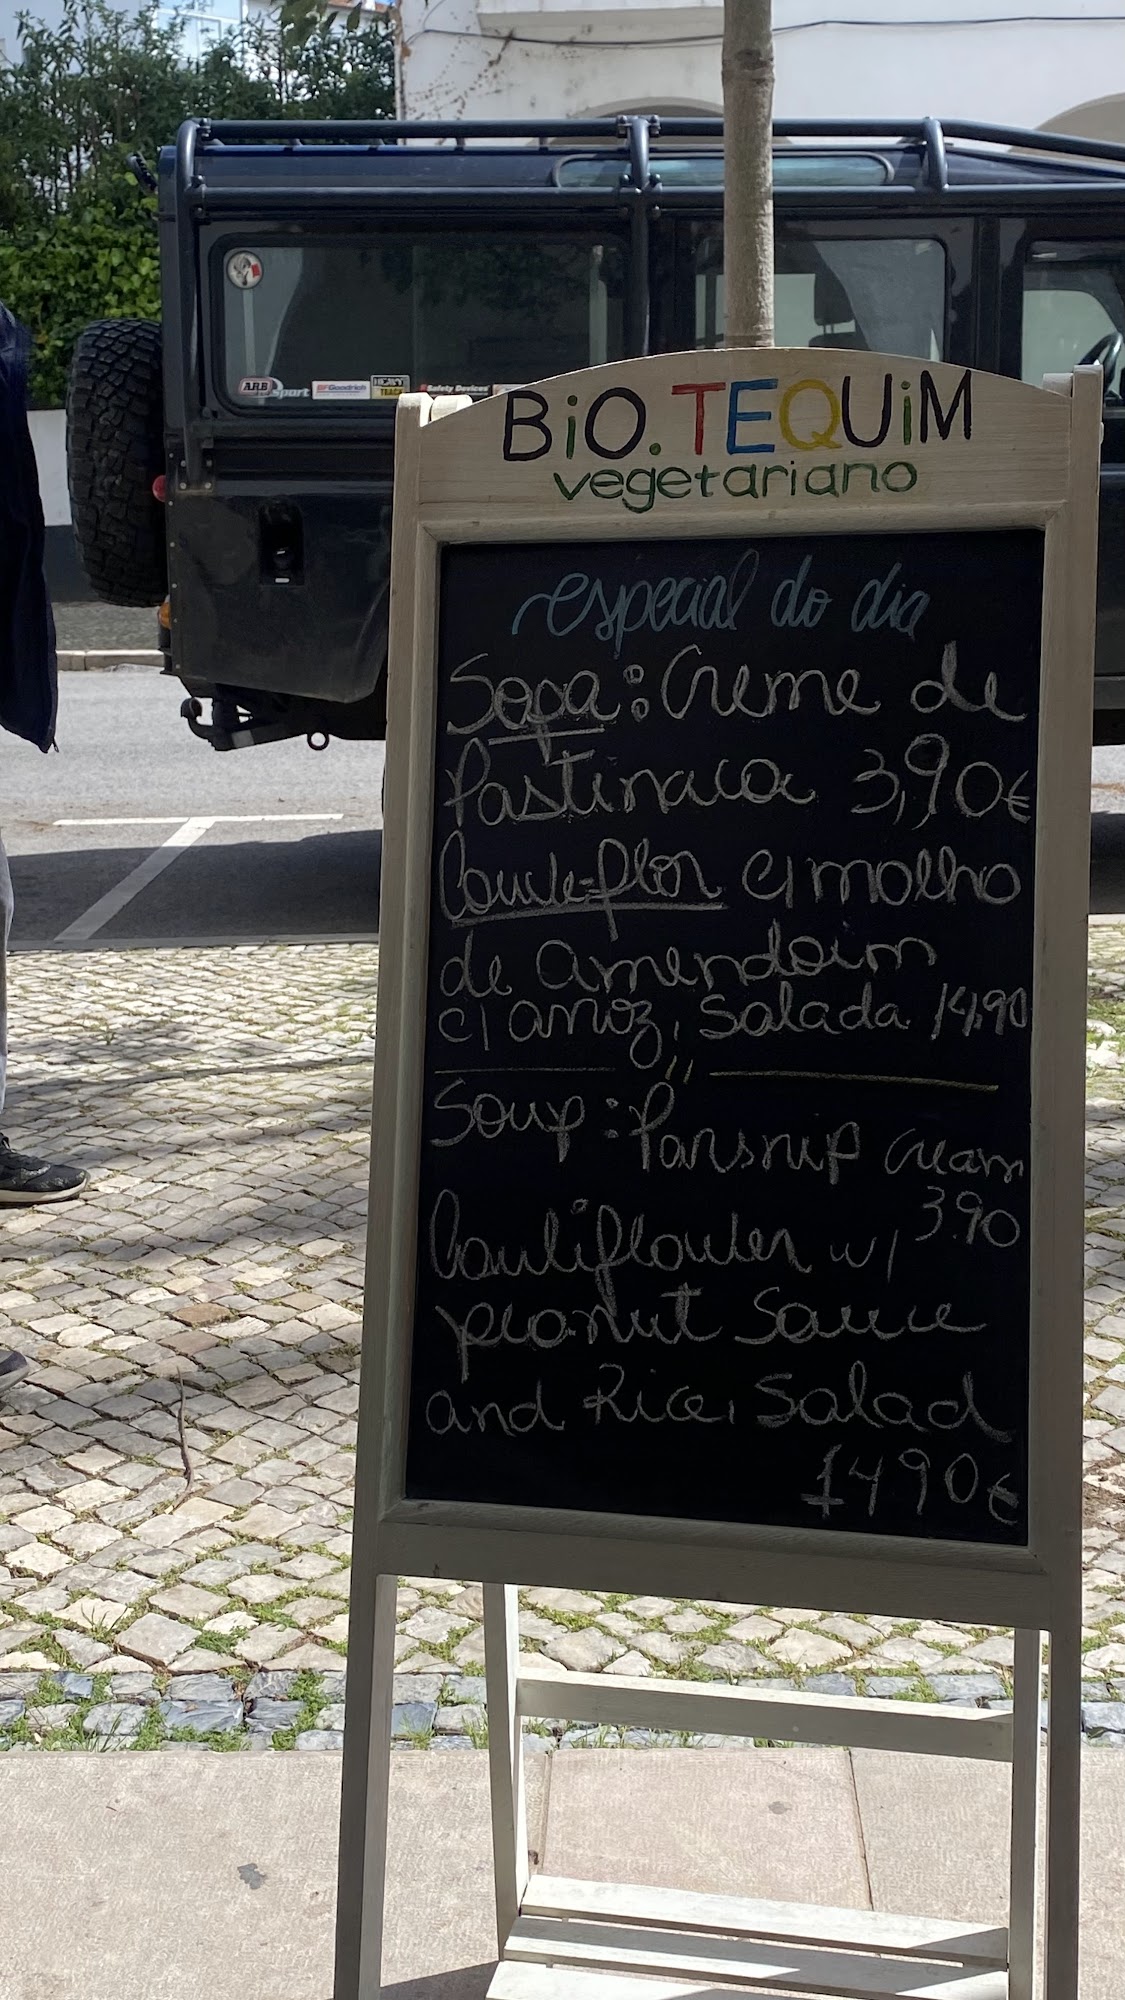 BiO.TEQUiM
vegetariano
especial do dia
Sopa: Creme de
Pastinaca 3,90€
Couve-flor c/ molho
de amendoim
c/ arroz, salada 14,90
Soup: Parsnip cream
3.90
Cauliflower w/
peanut Sauce
and Rice, Salad
1490€
ARB
sport
BFGoodrich
Safety Devices